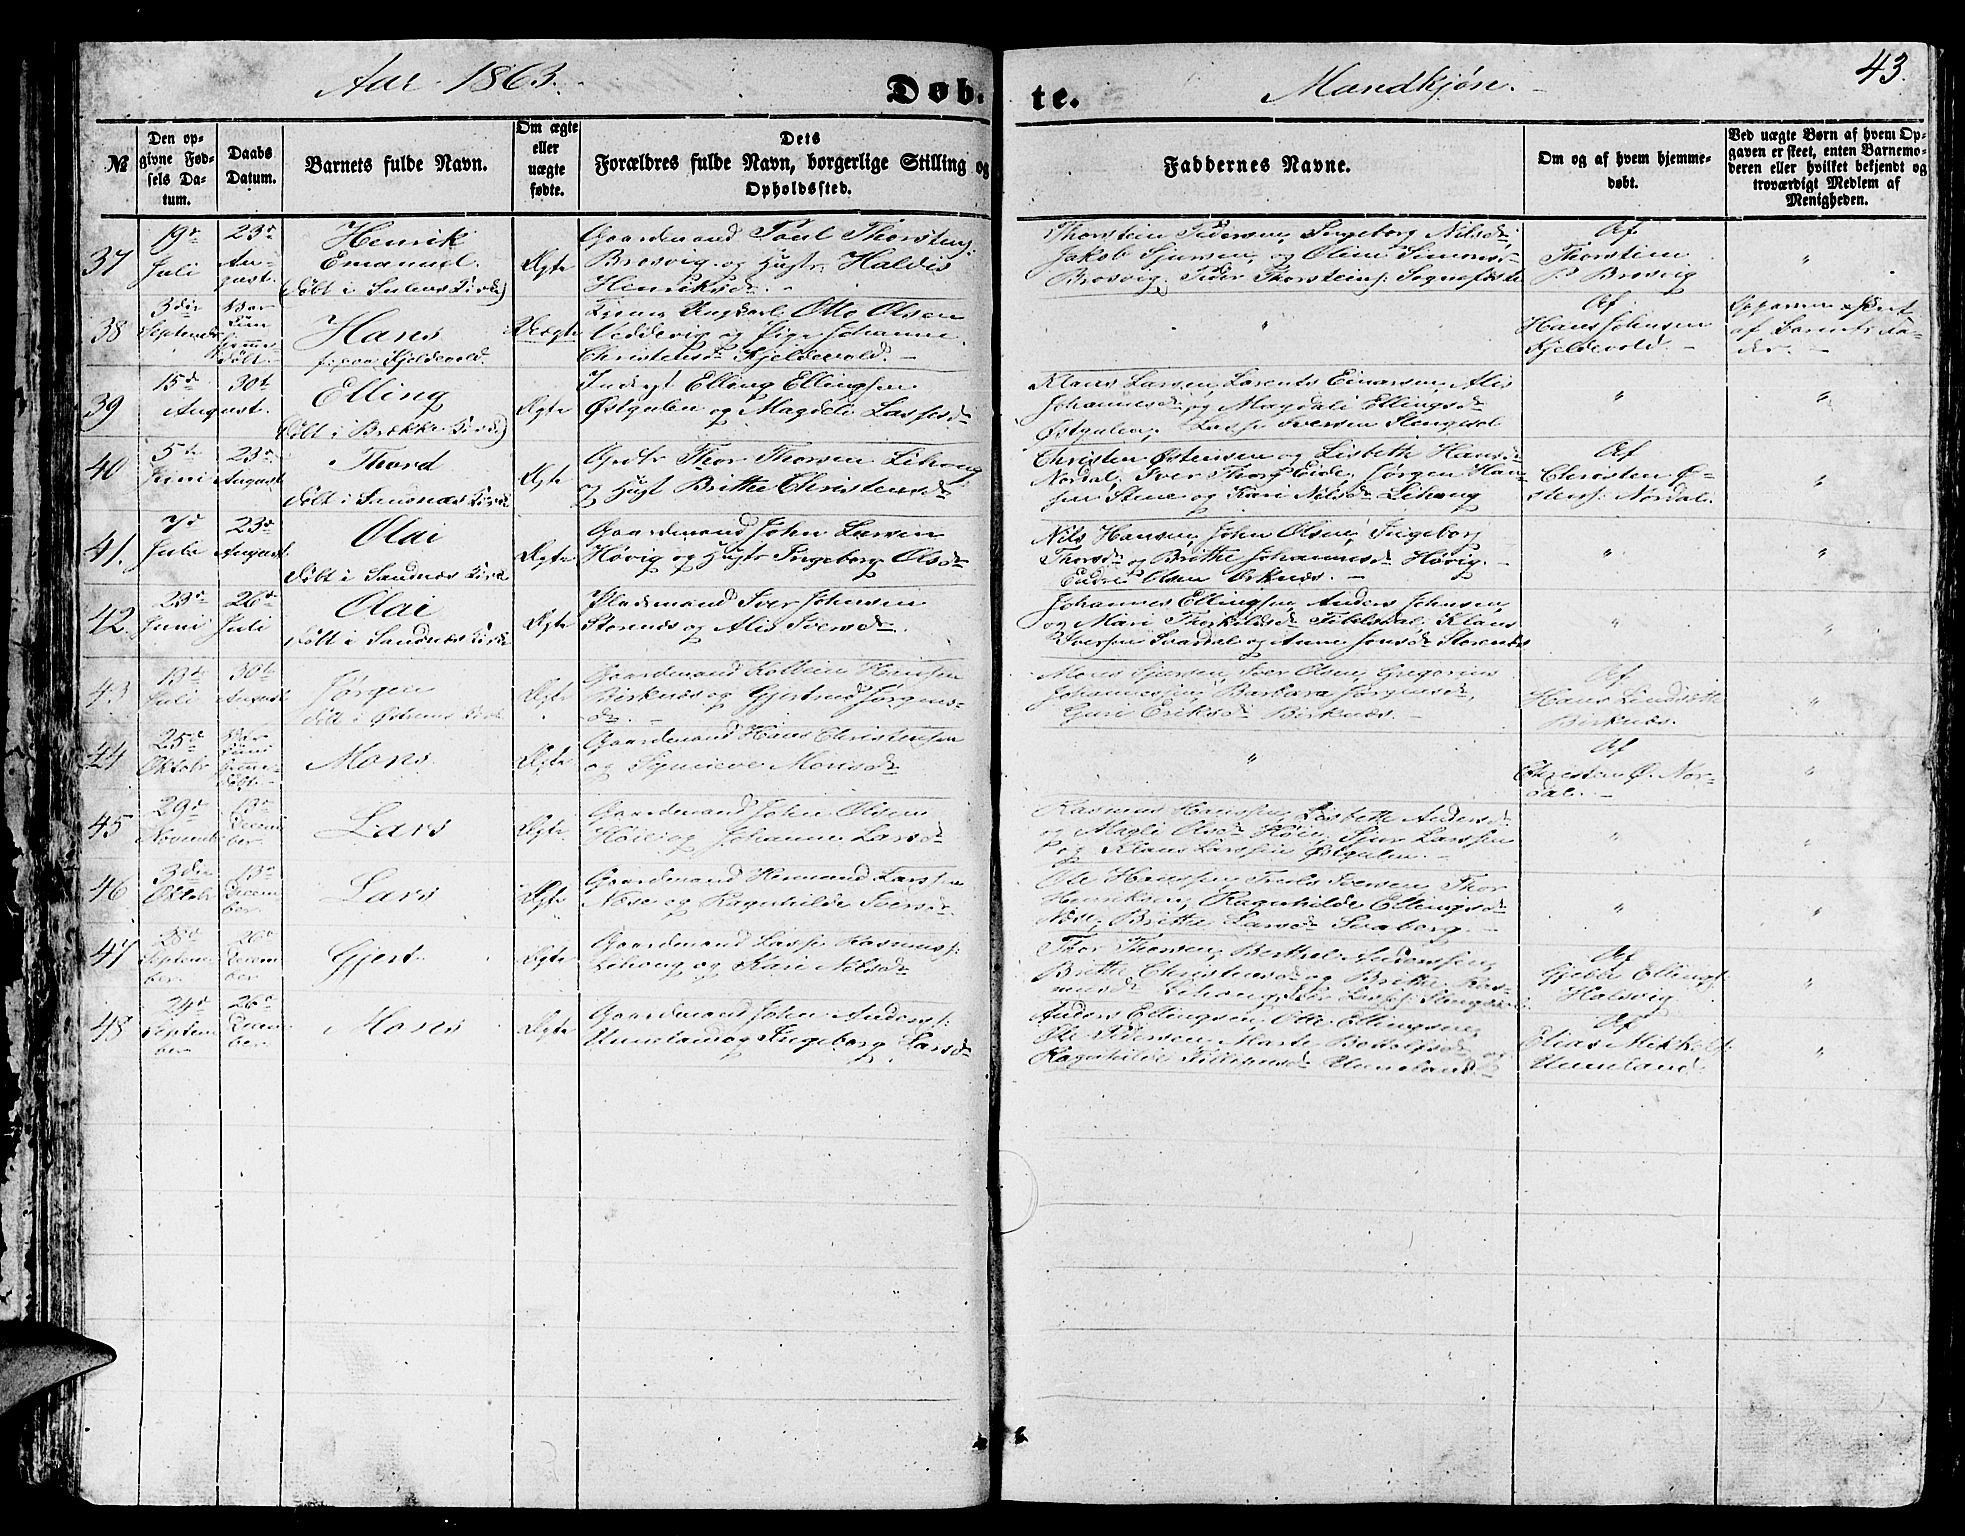 Aar 1863.
Døb-
te.
Mandkjøn.
43.
№
Den op-
givne Fød-
sels Da-
tum.
Daabs
Datum.
Barnets fulde Navn.
Om ægte
eller
uægte
fødte.
Dets
Forældres fulde Navn, borgerlige Stilling og
Opholdssted.
Faddernes Navne.
Om og af hvem hjemme-
døbt.
Ved uægte Børn af hvem Op-
gaven er skeet, enten Barnemo-
deren eller hvilket bekjendt og
troværdigt Medlem af
Menigheden.
37
19de
Juli
23de
Au-
gust.
Henrik
Emanuel.
Ægte
Gaardmand Poul Thorstens:
Brosvig og Hustr Haldis
Henriksdr
Thorstein Pedersen, Ingeborg Nilsdr,
Jakob Sjursen, og Oline Simonsdr
Brosvig, Peder Thorsteins: Sognefæste
Af
Thorstein
P Brosvig
"
38
3die
Septembr
Hans
Uægte
Ungkarl Otto Olsen
og Pige Johanne
Christensdr Kjeldevold.
"
Af
Hans Johnsen
Kjeldevold.
af Barnets Fa-
der.
39
15de
August.
30te
Elling
døbt i Brekke Kirke)
Ægte
Inderst Elling Ellingsen
Østgulen og Magdeli Lassesdr
Klaus Larsen, Lorents Einarsen, Alis
Johannesdr, og Magdali Ellingsdr
Østgulen, Lasse Iversen
"
"
40
5te
Juni
23de
August
Thord
Ægte
Thor Thorsen Lihoug
og Hust Brithe Christensdr
Christen Østensen og Lisbeth Hansdr
Nordal, Iver Thors: Eide, Jørgen Han-
sen Stene og Kari Nilsdr Lihoug
Af
Christen Ø-
stens: Nordal.
"
41.
7de
Juli
23de
August
Olai
døbt i Sandnæs Kirke
Ægte
Gaardmand John Larsen
Høvig og Hustr Ingeborg Olsdr
Nils Hansen, John Olsen, Ingeborg
Thorsdr og Brithe Johannesdr Høvig.
Endre Olsen Ørknæs.
"
"
42.
29de
Juni
26de
Juli
Olai
døbt i Sandnæs Kirke
Ægte
Pladsmand Iver Johnsen
Storenæs og Alis Iversdr.
Johannes Ellingsen, Anders Johnsen,
og Mari Thorkildsdr Tibelsdal, Klaus
Iversen Svardal og Anne Jonsdr Storenæs
"
"
43
19de
Juli
30te
August
Jørgen
Ægte
Gaardmand Kolbein Hanssen
Birknæs og Gjertrud Jørgens-
dr.
Mons Gjersen, Iver Olsen, Gregorius
Johannessen, Barbara Jørgensdr,
Guri Eriksdr Birknæs.
Af
Hans
Birknæs.
"
44
25de
Oktobr
Mons
Ægte
Gaardmand Hans Christensen
og Synneve Monsdr
"
Af
Christen Ø. Nor-
dal.
"
45
29de
Novemb
13de
Decem-
ber
Lars
Ægte
Gaardmand John Olsen
Høie og Johanne Larsdr
Rasmus Hanssen, Lisbeth Andersdr
og Magli Olsdr Høie, Sjur Larssen
og Klaus Larssen Østgulen.
"
"
46
3die
Oktobr
13de
Decem-
ber.
Lars
Ægte
Gaardmand Hermund Larssen
Nose og Ragnhilde Iversdr
Ole Hanssen, Truls Iversen, Thor
Henriksen, Ragnhilde Ellingsdr
Nose, Brithe Larsdr Svaborg.
"
"
47
28de
Septem-
ber.
26de
Decem-
ber
Gjert
Ægte
Gaardmand Lasse Rasmuss:
Lihoug og Kari Nilsdr
Thor Thorsen, Berthel Andersen,
Brithe Christensdr og Brithe Ras-
musdr Lihoug,
Af
Gjeble Ellings:
Halsvig
"
48
24de
Septem-
ber
26de
Decem-
ber
Moses
Ægte
Gaardmand John Anders:
Unneland og Ingeborg Larsdr
Anders Ellingsen, Otte Ellingsen,
Ole Pedersen, Marte Bottolfsdr, og
Ragnhilde Unneland.
Af
Elias Mikkels:
Unneland
"